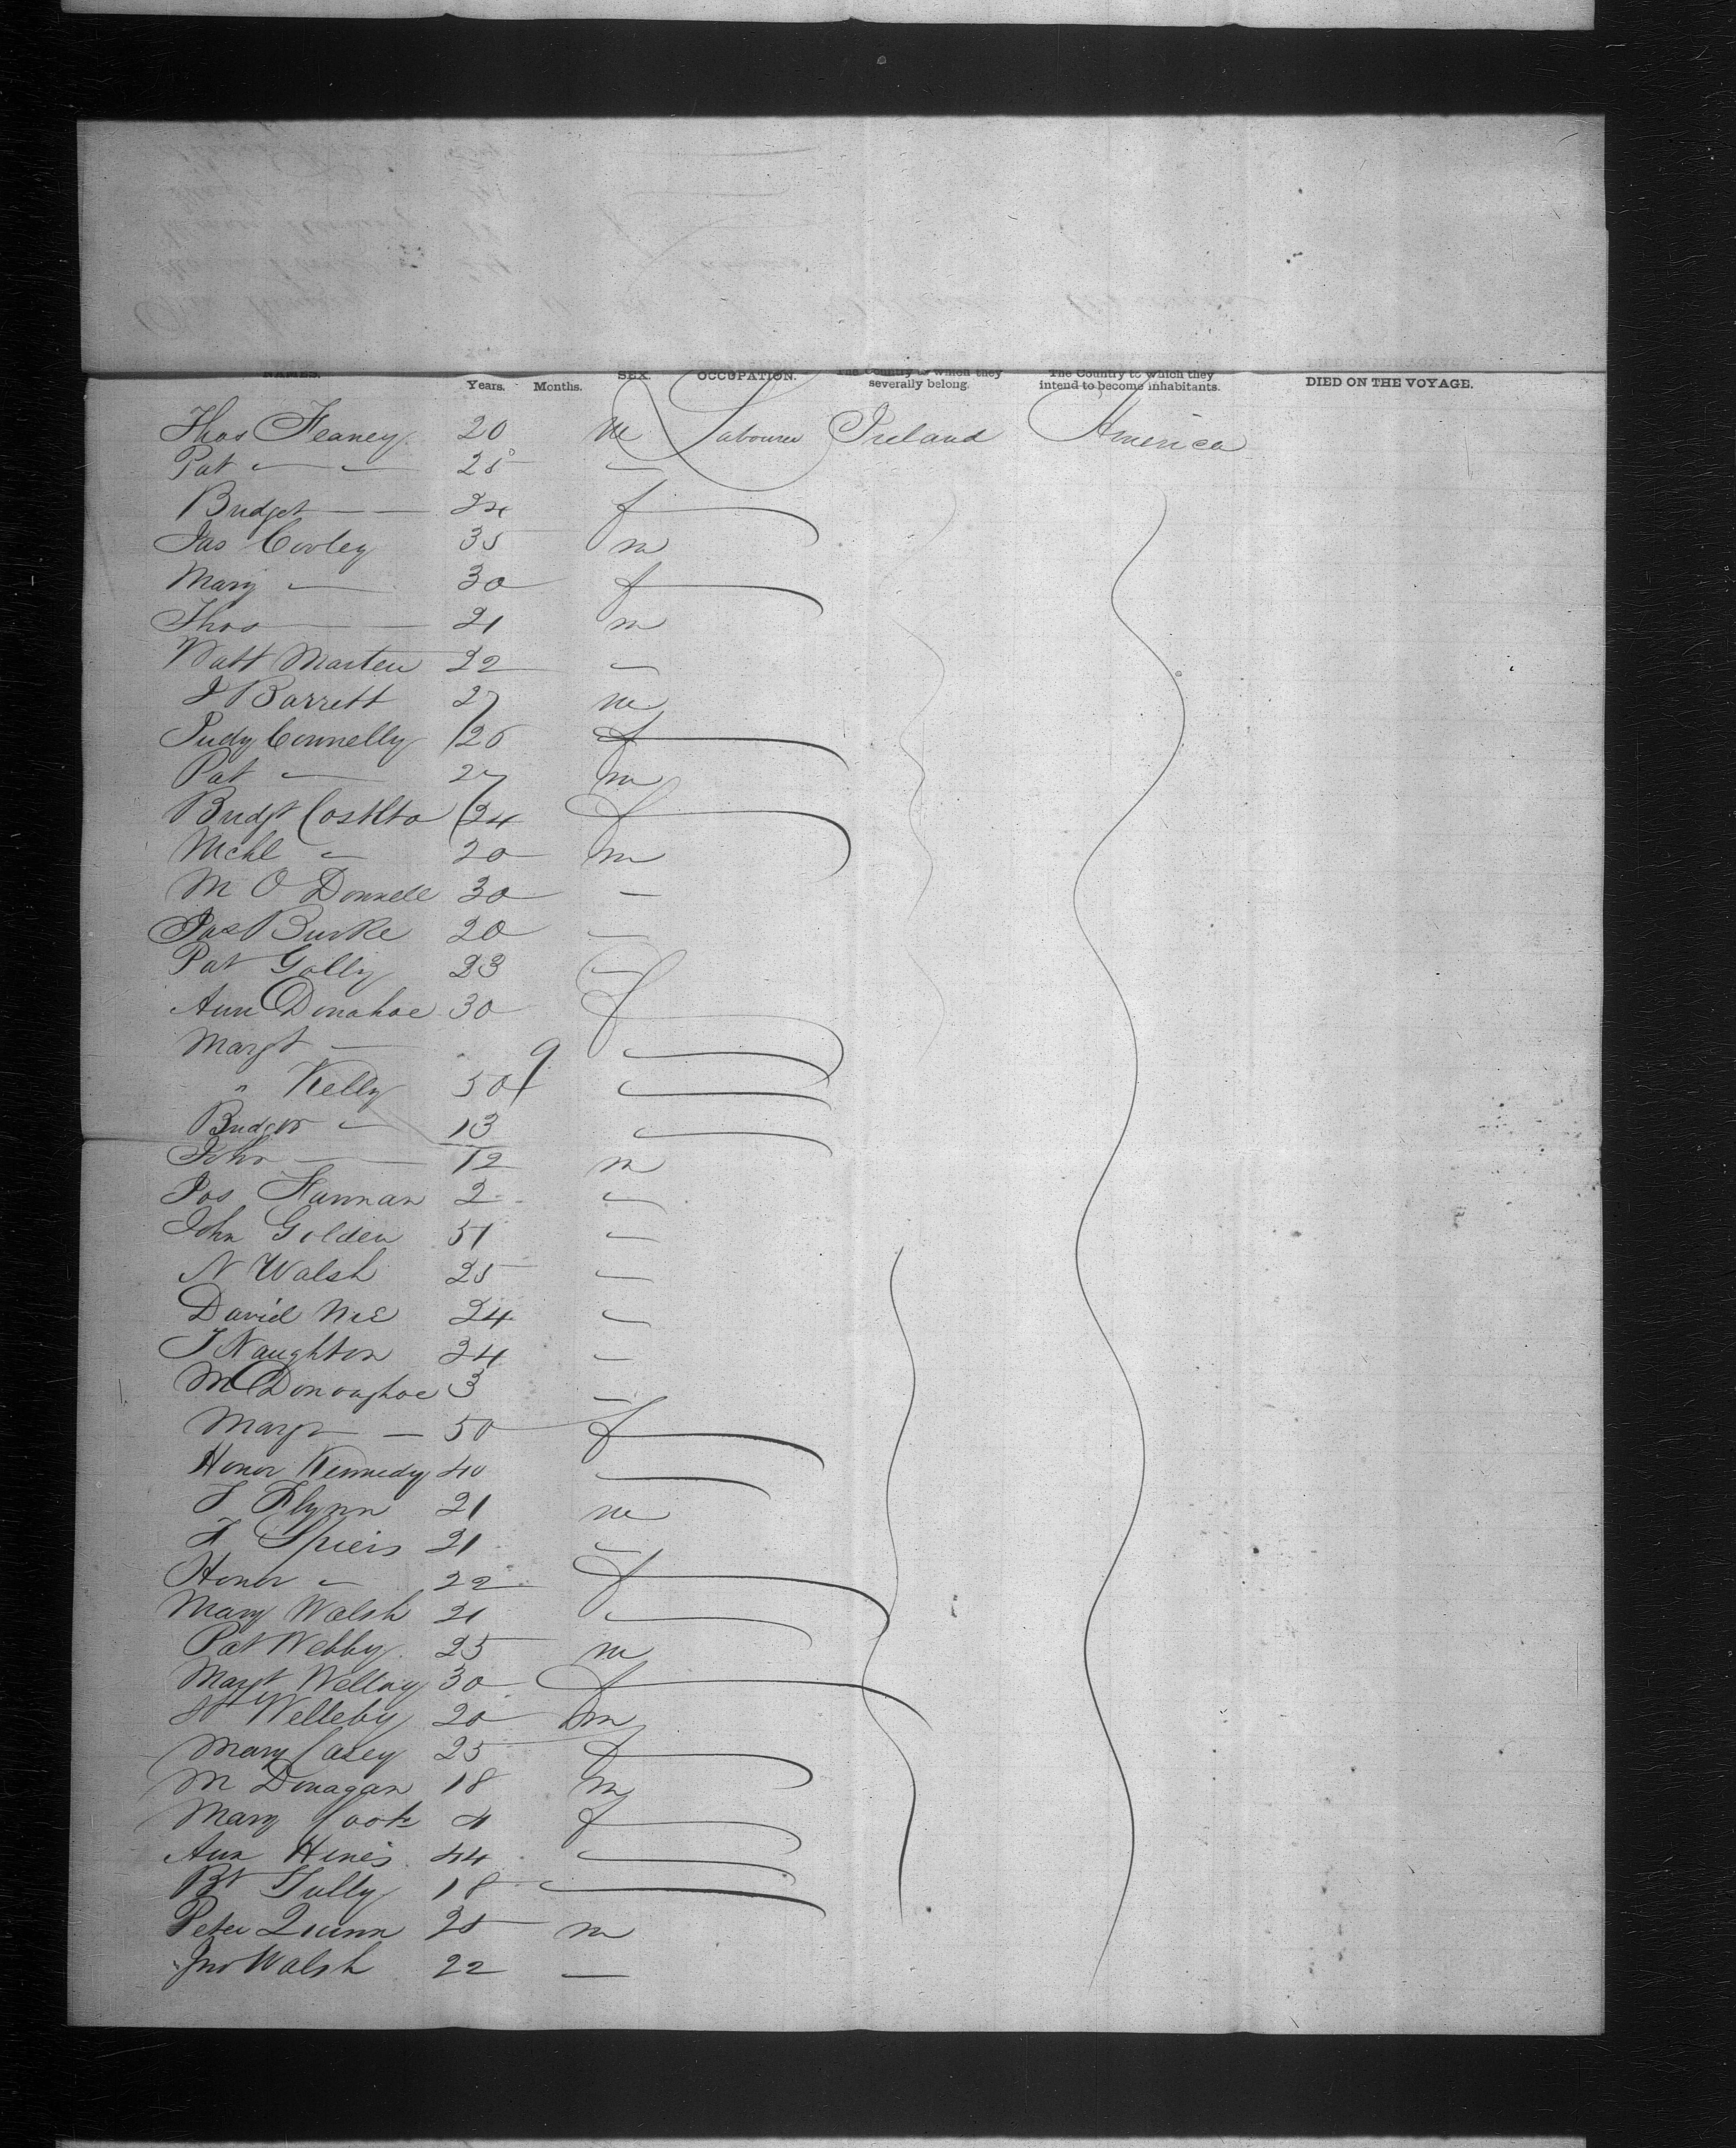 NAMES. Years. Months. SEX. OCCUPATION. The Country to which they severally belong. The Country to which they intend to become inhabitants. DIED ON THE VOYAGE.
Thos Feaney 20 m Labourer Ireland America
Pat — — 25 —
Bridget — — 24 f
Jas Corley 35 m
Mary — 30 f
Thos — — 21 m
Watt Marten 22 —
J Barrett 27 m
Judy Connelly 26 f
Pat — 27 m
Bridgt Costlto 24 f
Mchl " 20 m
M O Donnell 30 —
Jas Burke 20 —
Pat Golly 23 —
Ann Donahoe 30 f
Margt — 9 —
" Kelly 50 —
Bridget — 13 —
John — 12 m
Jos Hannan 2 —
John Golden 51 —
N Walsh 25 —
David 24 —
J Naughton 24 —
M Donoughoe 3 —
Margt — 50 f
Honor Kennedy 40 —
J Flynn 21 m
Spiers 21 —
Honor " 22 f
Mary Walsh 21 —
Pat Webby 25 m
Margt 30 f
Welleby 20 m
Mary Casey 25 f
M Donagan 18 m
Mary Cook f
Ann Hines 44 —
Bt Tully 18 —
Peter Quinn 25 m
Jno Walsh 22 —